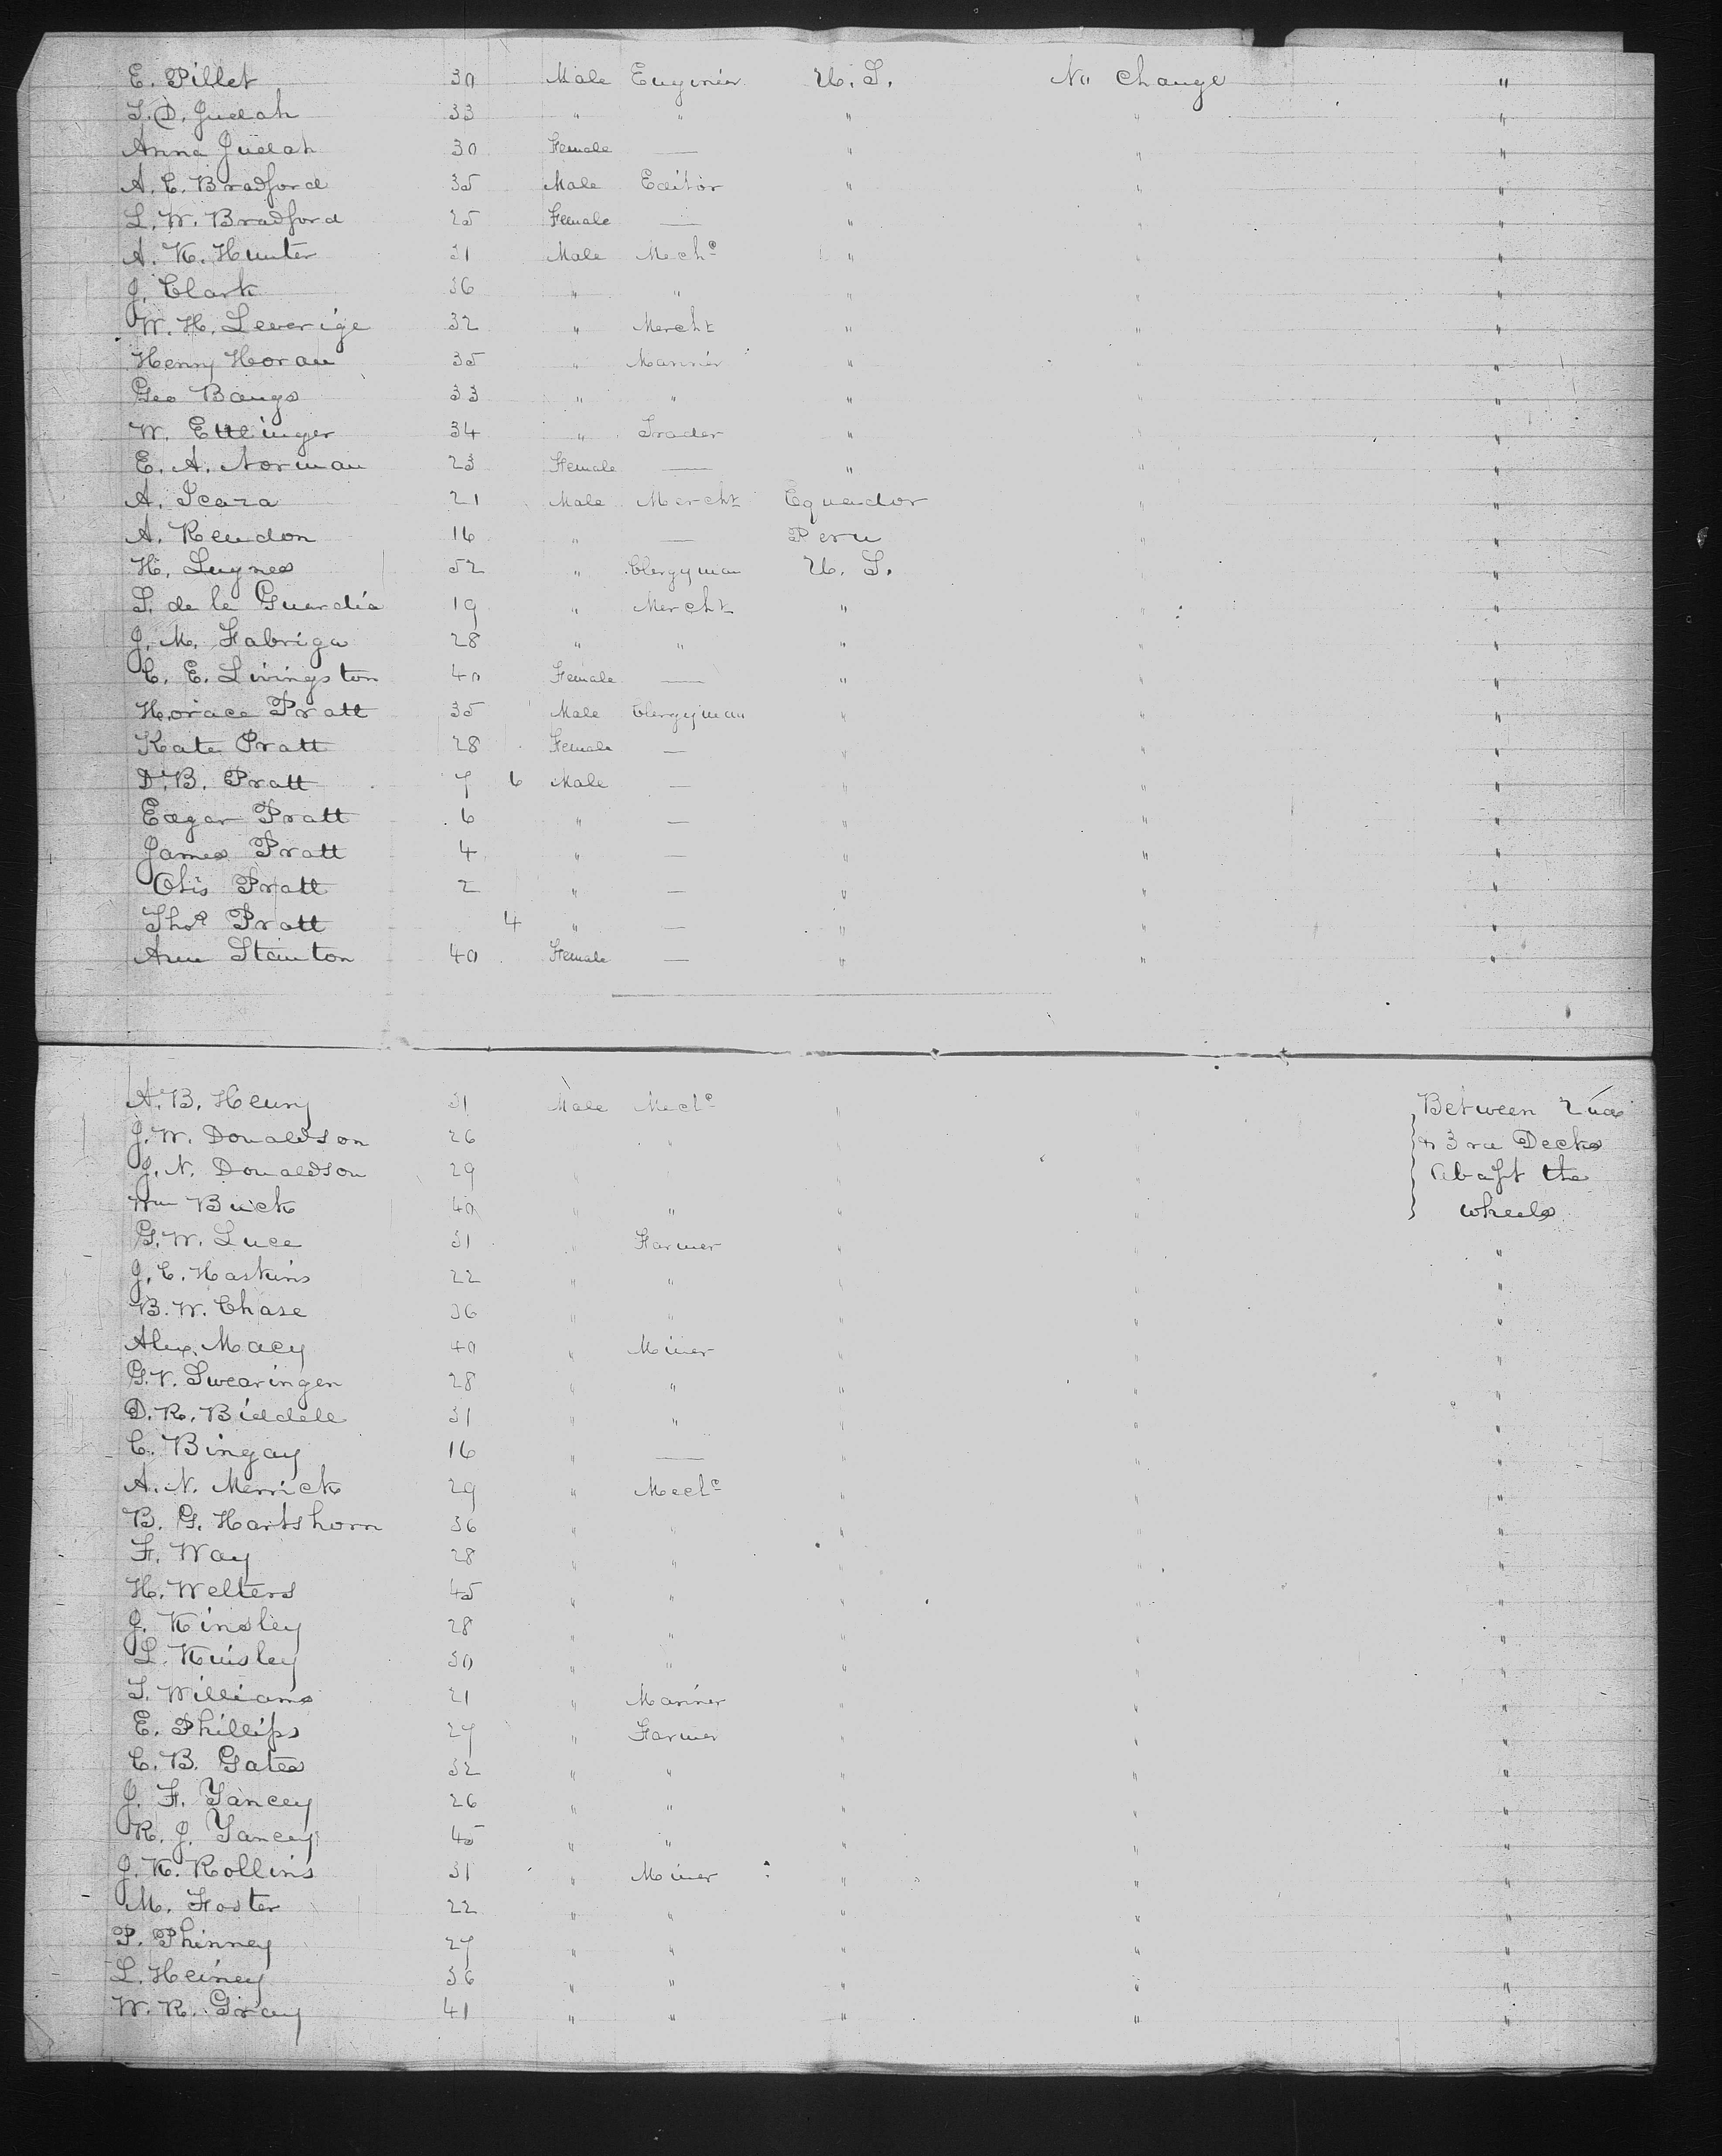 E. Pillet 30 Male Enginér U. S. No Change "
T. D. Judah 33 " " " " "
Anna Judah 30 Female — " " "
A. C. Bradford 35 Male Editor " " "
L. W. Bradford 25 Female — " " "
A. K. Hunter 31 Male Mechc " " "
J. Clark 36 " " " " "
W. H. Leverige 32 " Mercht " " "
Henry Horan 35 " Marinér " " "
Geo Bangs 33 " " " " "
W. Ettlinger 34 " Trader " " "
E. A. Norman 23 Female — " " "
A. Icaza 21 Male Mercht Equador " "
A. Rendon 16 " — Peru " "
H. 52 " Clergyman U. S. " "
S. de la Guardia 19 " Mercht " " "
J. M. Fabriga 28 " " " " "
C. E. Livingston 40 Female — " " "
Horace Pratt 35 Male Clergyman " " "
Kate Pratt 28 Female — " " "
D. B. Pratt 7 6 Male — " " "
Edgar Pratt 6 " — " " "
James Pratt 4 " — " " "
Otis Pratt 2 " — " " "
Thos Pratt 4 " — " " "
Ann Stanton 40 Female — " " "
A. B. Henry 31 Male Mechc " " Between 2nd
J. W. Donaldson 26 " " " " & 3rd Decks
J. N. Donaldson 29 " " " " Abaft the
Wm Buck 40 " " " " wheels
G. W. Luce 31 " Farmer " " "
J. C. Haskins 22 " " " " "
B. W. Chase 36 " " " " "
Alex. Macy 40 " Miner " " "
G. V. Swearingen 28 " " " " "
D. R. Biddell 31 " " " " "
C. Bingay 16 " — " " "
A. N. Merrick 29 " Mechc " " "
B. G. Hartshorn 36 " " " " "
F. Way 28 " " " " "
H. Welters 45 " " " " "
J. Kinsley 28 " " " " "
L. Kinsley 30 " " " " "
T. Williams 21 " Mariner " " "
E. Phillips 27 " Farmer " " "
C. B. Gates 32 " " " " "
J. F. Yancey 26 " " " " "
R. J. Yancey 45 " " " " "
J. K. Rollins 31 " Miner " " "
M. Foster 22 " " " " "
P. Phinney 27 " " " " "
L. Heiney 36 " " " " "
W. R. Gray 41 " " " " "